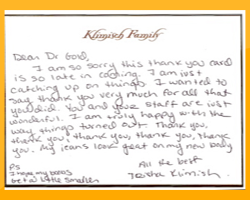 Klimisch Family
Dear Dr Gord,
I am so sorry this thank you card
is so late in coming. I am just
catching up on things. I wanted to
say thank you very much for all that
you did. You and your staff are just
wonderful. I am truly happy with the
way things turned out. Thank you,
thank you, thank you, thank you, thank
you. My jeans look great on my new body
All the best
PS
I hope my boobs
get a little smaller
Klimish.